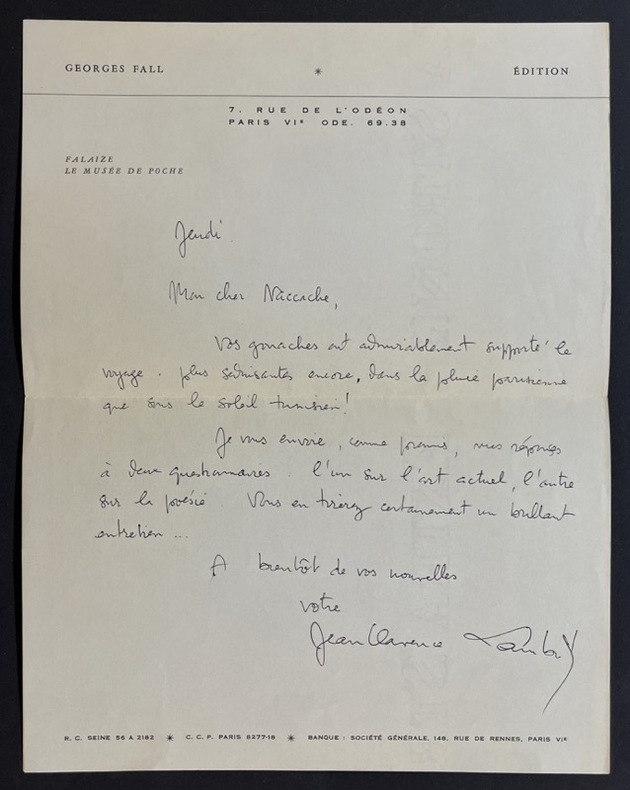 GEORGES FALL * ÉDITION
7, RUE DE L'ODÉON
PARIS VIe ODE. 69.38
FALAIZE
LE MUSÉE DE POCHE
Jeudi
Mon cher Naccache,
Vos gouaches ont admirablement supporté le
voyage. plus séduisantes encore, dans la pluie parisienne
que sous le soleil tunisien!
Je vous envoie, comme promis, mes réponses
à deux questionnaires : l'un sur l'art actuel, l'autre
sur la poésie. Vous en tirerez certainement un brillant
entretien ...
A bientôt de vos nouvelles
votre
Jean Clarence Lambert
R. C. SEINE 56 A 2182 * C. C. P. PARIS 8277-18 * BANQUE : SOCIÉTÉ GÉNÉRALE, 148, RUE DE RENNES, PARIS VIe